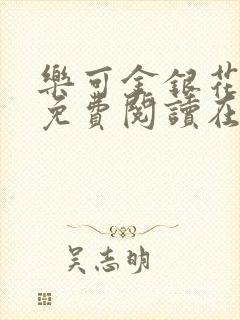 樂可金銀花
免費閱讀在
吴志明